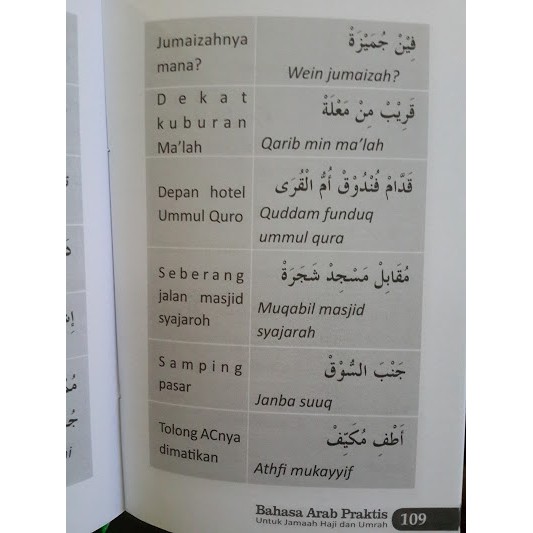 Jumaizahnya
mana?
فِيْنْ جُمَيْزَةْ
Wein jumaizah?
Dekat
kuburan
Ma'lah
قَرِيْبْ مِنْ مَعْلَةْ
Qarib min ma'lah
Depan hotel
Ummul Quro
قَدَّامْ فُنْدُوْقْ أُمُّ الْقُرَى
Quddam funduq
ummul qura
Seberang
jalan masjid
syajaroh
مُقَابِلْ مَسْجِدْ شَجَرَةْ
Muqabil masjid
syajarah
Samping
pasar
جَنْبَ السُّوْقْ
Janba suuq
Tolong ACnya
dimatikan
أَطْفِ مُكَيِّفْ
Athfi mukayyif
Bahasa Arab Praktis
Untuk Jamaah Haji dan Umrah
109